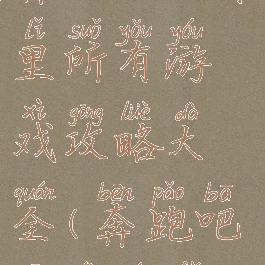 lǐ suǒ yǒu yóu
里所有游
xì gōng lüè dà
戏攻略大
quán bēn pǎo bā
全(奔跑吧